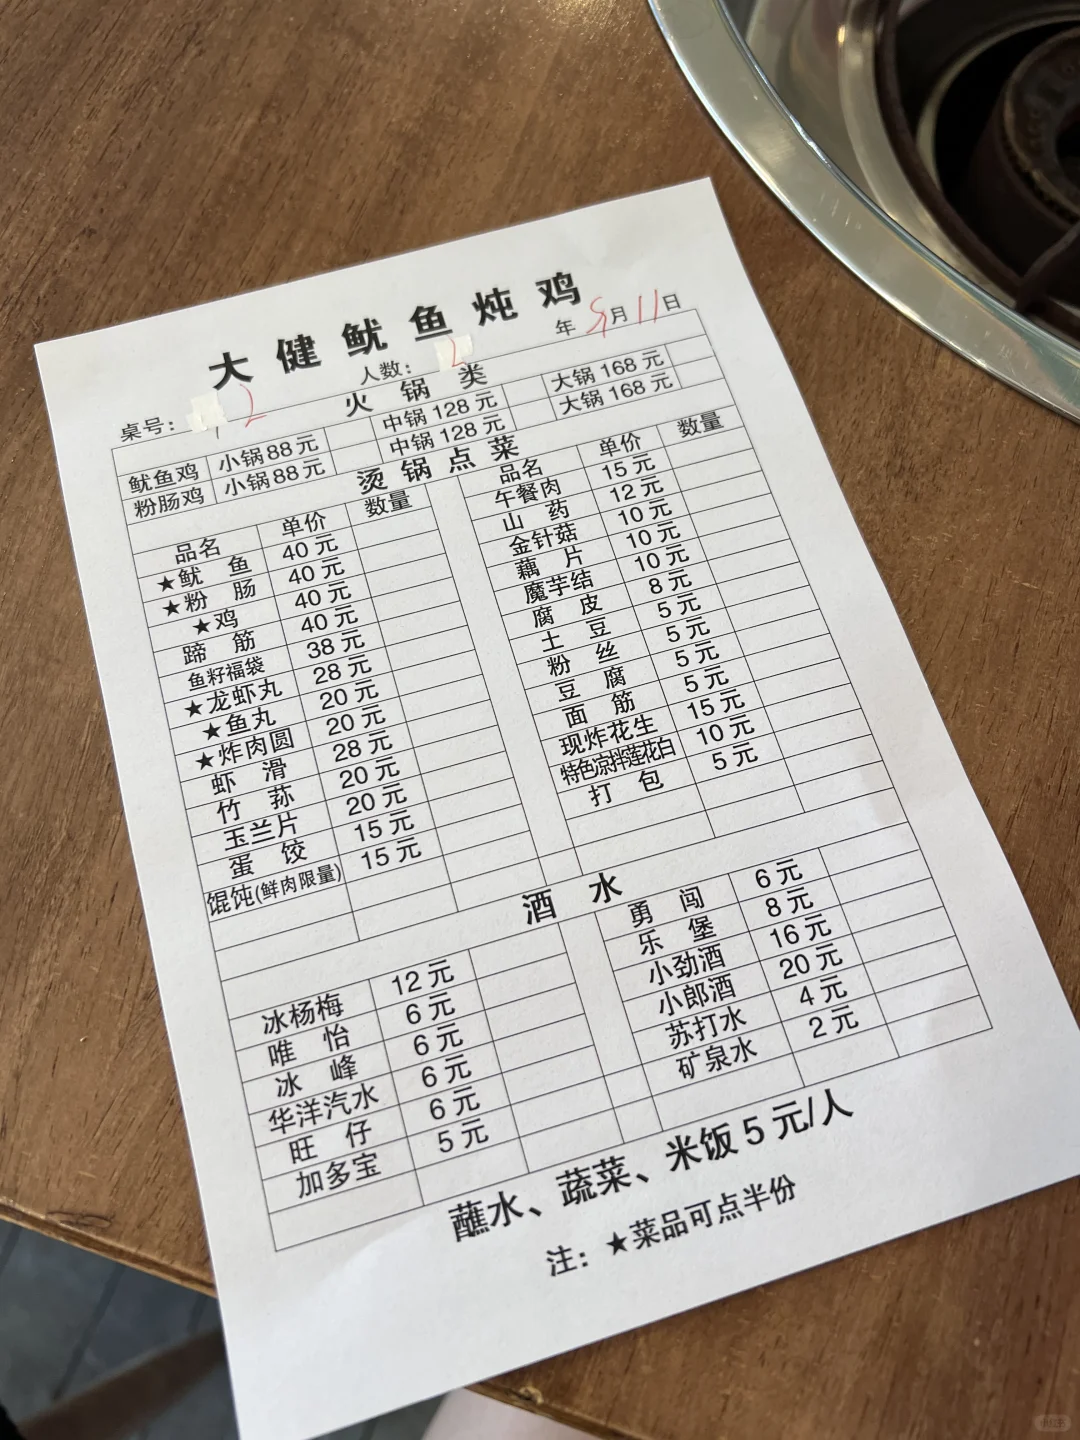 大健鱿鱼炖鸡
桌号: 2 人数: 年 9月11日
火锅类
鱿鱼鸡 小锅88元 中锅128元 大锅168元
粉肠鸡 小锅88元 中锅128元 大锅168元
烫锅点菜
品名 单价 数量 品名 单价 数量
★鱿鱼 40元 午餐肉 15元
★粉肠 40元 山药 12元
★鸡 40元 金针菇 10元
蹄筋 40元 藕片 10元
鱼籽福袋 38元 魔芋结 10元
★龙虾丸 28元 腐皮 8元
★鱼丸 20元 土豆 5元
★炸肉圆 20元 粉丝 5元
虾滑 28元 豆腐 5元
竹荪 20元 面筋 5元
玉兰片 20元 现炸花生 15元
蛋饺 15元 特色凉拌莲花白 10元
馄饨(鲜肉限量) 15元 打包 5元
酒水
冰杨梅 12元 勇闯 6元
唯怡 6元 乐堡 8元
冰峰 6元 小劲酒 16元
华洋汽水 6元 小郎酒 20元
旺仔 6元 苏打水 4元
加多宝 5元 矿泉水 2元
蘸水、蔬菜、米饭5元/人
注: ★菜品可点半份